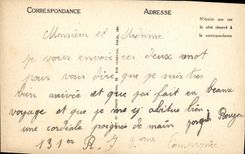 CORRESPONDANCE
ADRESSE
N'écrire que sur
le côté réservé à
la correspondance
Monsieur et Madame
je vous envoie ces deux mot
pour vous dire que je suis très
bien arrivé et que j'ai fait en beaux
voyage et que je my abitue bien
une cordiale poignée de main
131er R. I 9eme Compagnie